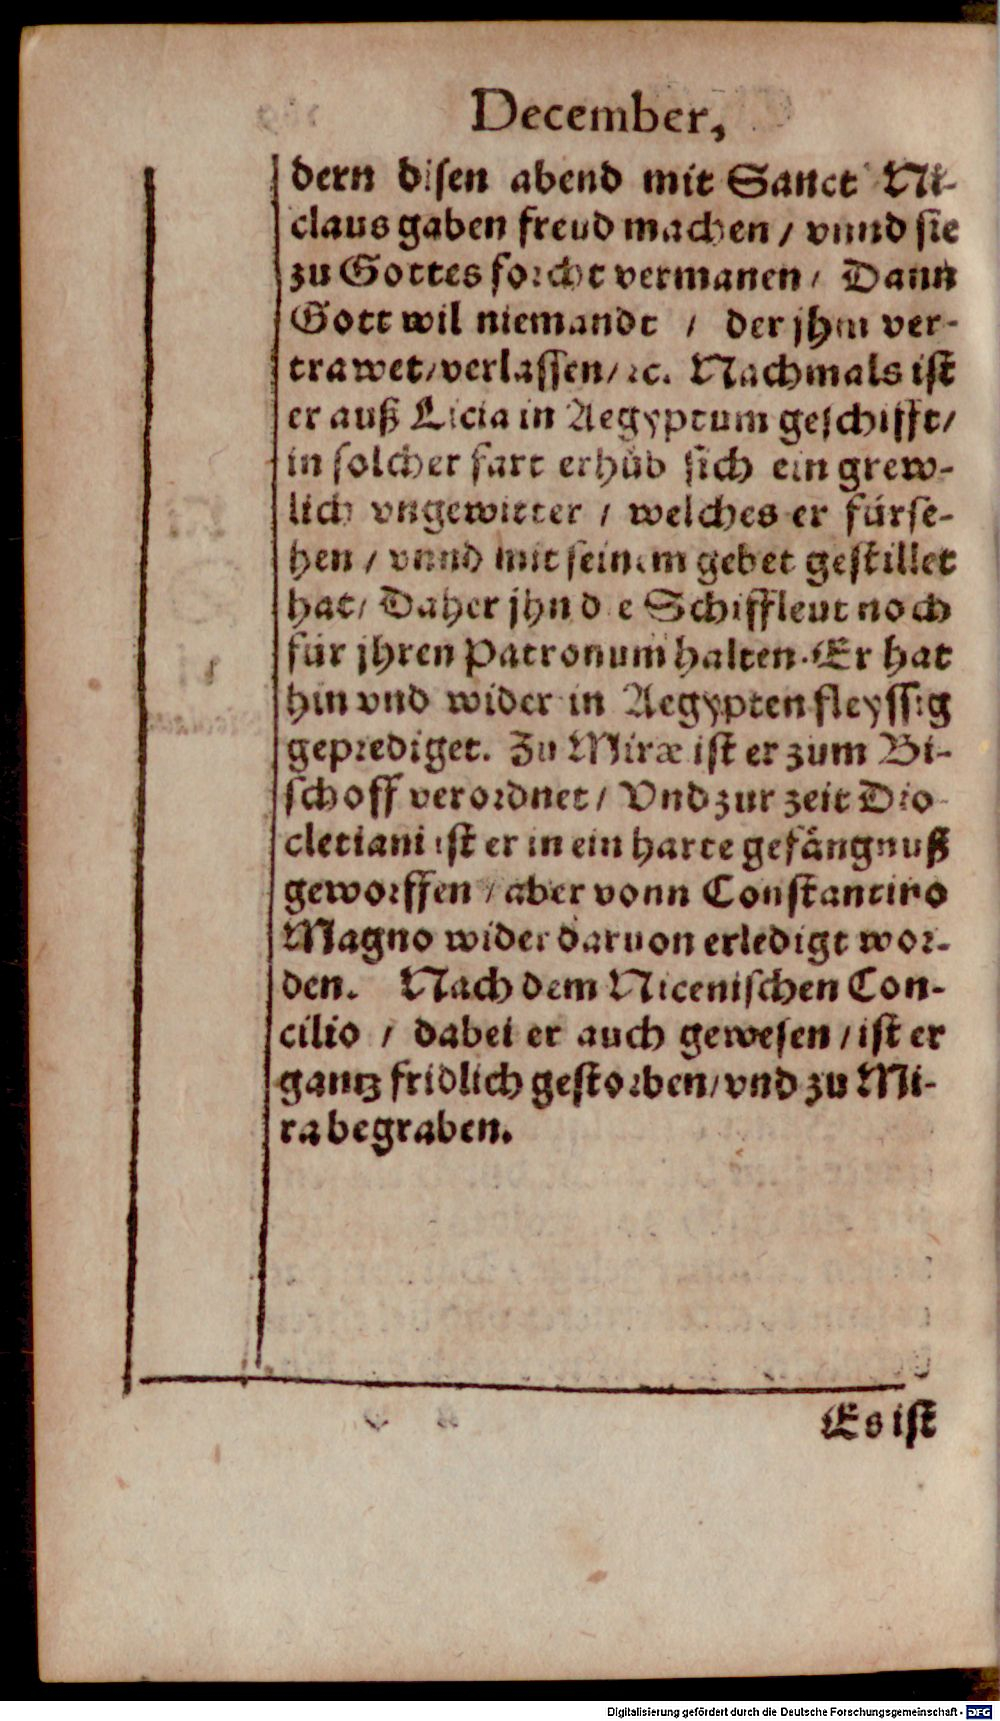 December,
dern disen abend mit Sanct Ni-
claus gaben freud machen / vnnd sie
zu Gottes forcht vermanen / Dann
Gott wil niemandt / der jhm ver-
trawet / verlassen / ꝛc. Nachmals ist
er auß Licia in Aegyptum geschifft /
in solcher fart erhůb sich ein grew-
lich vngewitter / welches er fürse-
hen / vnnd mit seinem gebet gestillet
hat / Daher jhn die Schiffleut noch
für jhren Patronum halten. Er hat
hin vnd wider in Aegypten fleyssig
geprediget. Zu Miræ ist er zum Bi-
schoff verordnet / Vnd zur zeit Dio-
cletiani ist er in ein harte gefängnuß
geworffen / aber vonn Constantino
Magno wider daruon erledigt wor-
den. Nach dem Nicenischen Con-
cilio / dabei er auch gewesen / ist er
gantz fridlich gestorben / vnd zu Mi-
ra begraben.
Es ist
Digitalisierung gefördert durch die Deutsche Forschungsgemeinschaft - DFG